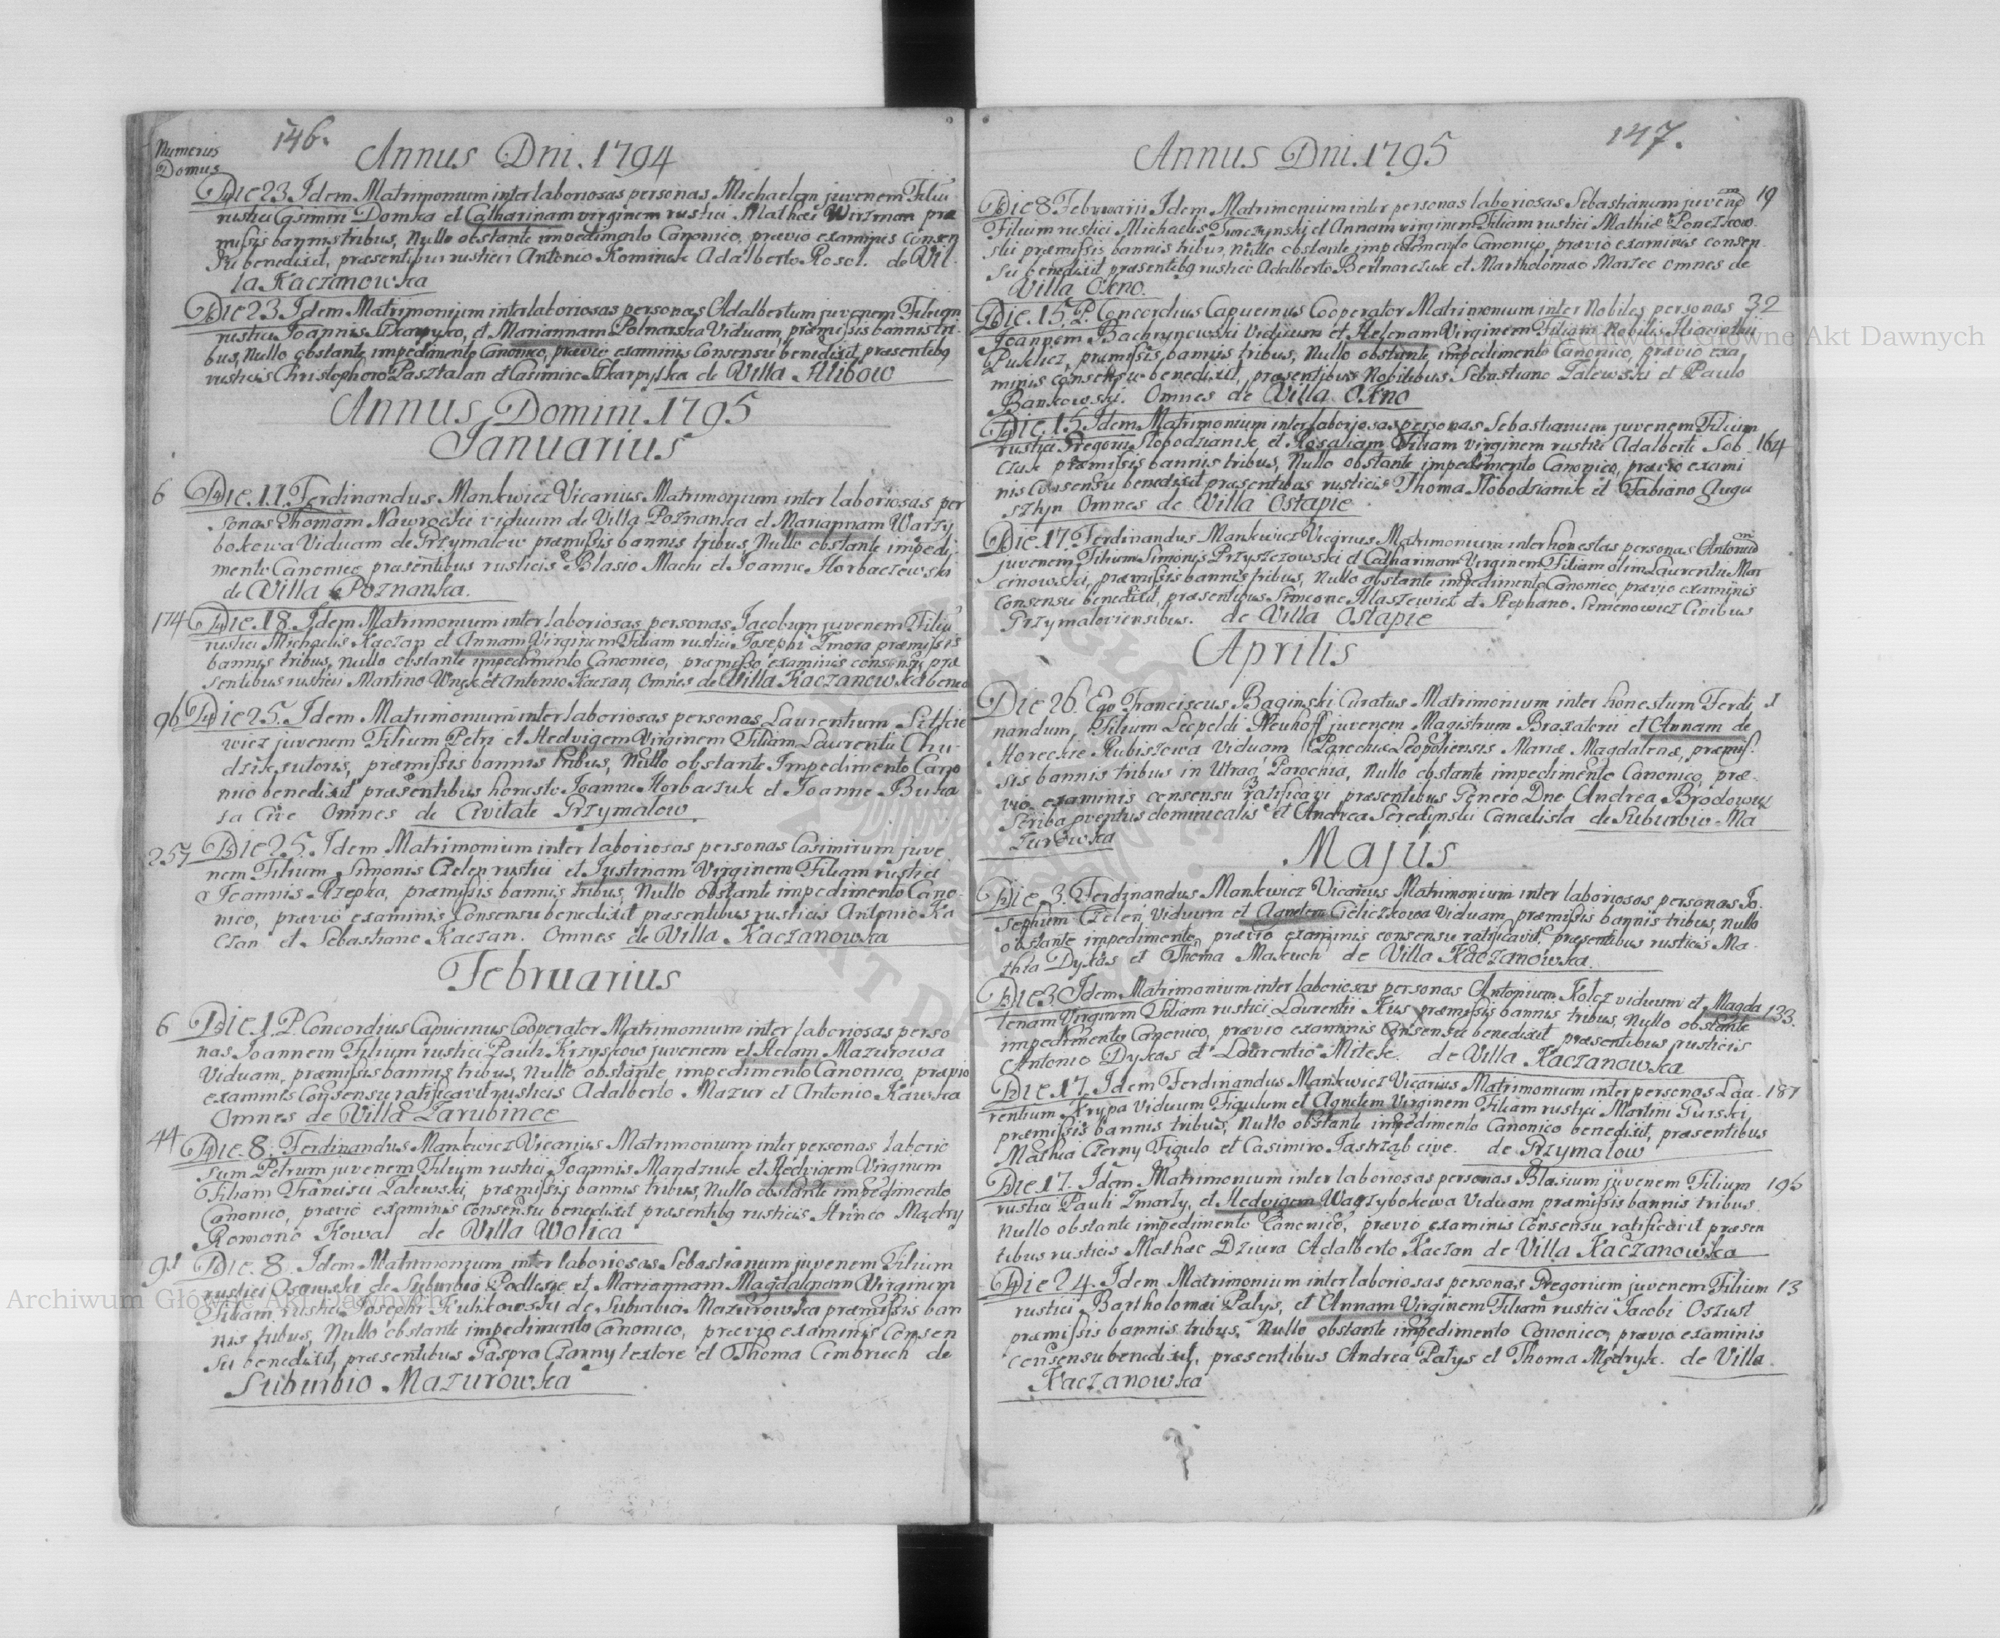 146.
Numerus
Domus
Annus Dni. 1794
Die 23. Idem Matrimonium inter laboriosas personas, Michaelem juvenem Filiū
rustici Casimiri Domka et Catharinam virginem rustici Mathæi Wirzman præ
missis bannis tribus, Nullo obstante impedimento Canonico, prævio examinis consen
su benedixit, præsentibus rusticis Antonio Kominek Adalberto Rosol. de Vil-
la Kaczanowka
Die 23. Idem Matrimonium inter laboriosas personas Adalbertum juvenem Filium
rustici Joannis et Mariannam Polnarska Viduam, præmissis bannis tri-
bus, Nullo obstante impedimento Canonico, prævio examinis Consensu benedixit præsentibq
rusticis Christophoro Pasztalan et Casimiro Skarpyska de Villa Stibow
Annus Domini 1795
Januarius
6 Die. 11. Ferdinandus Mankwicz Vicarius Matrimonium inter laboriosas per
sonas Thomam Nawrocki viduum de Villa Poznanka et Mariannam Warzy
bokowa Viduam de Grzymalow præmissis bannis tribus Nullo obstante impedi-
mento Canonico præsentibus rusticis Blasio Machi et Joanne Horbaczewski
de Villa Poznanka.
174 Die. 18. Idem Matrimonium inter laboriosas personas Jacobum juvenem Filiū
rustici Michaelis Kaczan et Annam Virginem Filiam rustici Josephi Zmora præmissis
bannis tribus, nullo obstante impedimento Canonico, præmisso examinis consensu præ
sentibus rustici Martino et Antonio Kaczan, Omnes de Villa Kaczanowka bened
96 Die 25. Idem Matrimonium inter laboriosas personas Laurentium
wicz juvenem Filium Petri et Hedvigem Virginem Filiam Laurentii Chu-
dzik sutoris, præmissis bannis tribus, Nullo obstante Impedimento Cano
nico benedixit præsentibus honesto Joanne Horbaczuk et Joanne Buka
sa Cive Omnes de Civitate Grzymalow.
257 Die 25. Idem Matrimonium inter laboriosas personas Casimirum juve
nem Filium Simonis Czelen rustici et Justinam Virginem Filiam rustici
Joannis Rzepka, præmissis bannis tribus, Nullo obstante impedimento Cano-
nico, prævio examinis Consensu benedixit præsentibus rusticis Antonio Ka
czan et Sebastiano Kaczan. Omnes de Villa Kaczanowka
Februarius
6 Die 1. P. Concordius Capucinus Cooperator Matrimonium inter laboriosas perso
nas Joannem Filium rustici Pauli Krzyskow juvenem et Helam Mazurowa
Viduam, præmissis bannis tribus, Nullo obstante impedimento Canonico, prævio
examinis Consensu ratificavit rusticis Adalberto Mazur et Antonio Kawska
Omnes de Villa Zarubince
44 Die. 8. Ferdinandus Mankwicz Vicarius Matrimonium inter personas laborio
sum Petrum juvenem Filium rustici Joannis Mandziuk et Hedvigem Virginum
Filiam Francisci Zalewski, præmissis bannis tribus, Nullo obstante impedimento
Canonico, prævio examinis Consensu benedixit præsentibq rusticis Hrinco Mądry
Romano Kowal de Villa Wolica
91 Die. 8. Idem Matrimonium inter laboriosas Sebastianum juvenem Filium
rustici Osowski de Suburbio Podlesie et Mariannam Magdalenam Virginem
Filiam rustici Josephi Kulikowski de Suburbia Mazurowka præmissis ban
nis tribus, Nullo obstante impedimento Canonico, prævio examinis Consen
su benedixit præsentibus Gaspro Czarny textore et Thoma Cembruch de
Suburbio Mazurowka
147.
Annus Dni. 1795
Die 8 Februarii Idem Matrimonium inter personas laboriosas Sebastianum juvenem 19
Filium rustici Michaelis Turczynski et Annam virginem Filiam rustici Mathiæ Ponczkow-
ski præmissis bannis tribus, nullo obstante impedimento Canonico, prævio examinis consen-
su benedixit præsentibq rustico Adalberto Bednarczuk et Martholomæo Marzec omnes de
Villa Okno.
Die. 15. P. Concordius Capucinus Cooperator Matrimonium inter Nobiles personas 32
Joannem Bachrynowski Viduum et Helenam Virginem Filiam Nobilis
præmissis bannis tribus, Nullo obstante, impedimento Canonico, prævio exa
minis consensu benedixit, præsentibus Nobilibus Sebastiano Zalewski et Paulo
Bankowski. Omnes de Villa Okno
Die. 15. Idem Matrimonium inter laboriosas personas Sebastianum juvenem Filium
rustici Gregorii Slobodzianik, et Rosaliam Filiam virginem rustici Adalberti Sob- 164
czuk præmissis bannis tribus, Nullo obstante impedimento Canonico, prævio exami
nis Consensu benedixit præsentibus rusticis Thoma Slobodzianik et Fabiano Augu
sztyn Omnes de Villa Ostapie
Die 17. Ferdinandus Mankwicz Vicarius Matrimonium inter honestas personas Antonium
juvenem Filium Simonis Przyszczowski et Catharinam Virginem Filiam olim Laurentii Mar
cinowski, præmissis bannis tribus, Nullo obstante impedimento Canonico, prævio examinis
Consensu benedixit, præsentibus Simeone Ilaszewicz et Stephano Simenowicz Civibus
Grzymaloviensibus. de Villa Ostapie
Aprilis
Die 26. Ego Franciscus Baginski Curatus Matrimonium inter honestum Ferdi 1
nandum, Filium Leopoldi Neuhoff juvenem Magistrum Braxatorii et Annam de
Horeckie Kubiszowa Viduam Parochiæ Leopoliensis Mariæ Magdalenæ, præmis-
sis bannis tribus in Utraq Parochia, Nullo obstante impedimento Canonico, præ-
vio examinis consensu ratificavi præsentibus Genero Dno Andrea Brodowski
Scriba proventus dominicalis et Andrea Seredynski Cancelista de Suburbio Ma
zurowka
Majus
Die. 3. Ferdinandus Mankwicz Vicarius Matrimonium inter laboriosas personas Jo-
sephum Czelen, Viduum et Agnetem Gieliczkowa Viduam, præmissis bannis tribus, nullo
obstante impedimento, prævio examinis consensu ratificavit, præsentibus rusticis Ma-
thia Dykas et Thoma Makuch de Villa Kaczanowka.
Die 3. Idem Matrimonium inter laboriosas personas Antonium Kolcz viduum et Magda 133.
lenam Virginem Filiam rustici Laurentii Kus præmissis bannis tribus, Nullo obstante
impedimento Canonico, prævio examinis Consensu benedixit præsentibus rusticis
Antonio Dykas et Laurentio Mitek. de Villa Kaczanowka
Die. 17. Idem Ferdinandus Mankwicz Vicarius Matrimonium inter personas Lau- 187
rentium Krypa Viduum Figulum et Agnetem Virginem Filiam rustici Martini Gurski
præmissis bannis tribus, Nullo obstante impedimento Canonico benedixit, præsentibus
Mathia Czerny Figulo et Casimiro Jastrząb cive. de Grzymalow
Die 17. Idem Matrimonium inter laboriosas personas Blasium juvenem Filium 195
rustici Pauli Zmarly, et Hedvigem Warzybokowa Viduam præmissis bannis tribus
Nullo obstante impedimento Canonico, prævio examinis Consensu ratificavit præsen
tibus rusticis Mathæo Dziura Adalberto Kaczan de Villa Kaczanowka
Die 24. Idem Matrimonium inter laboriosas personas Gregorium juvenem Filium 13
rustici Bartholomæi Palys, et Annam Virginem Filiam rustici Jacobi Oszust
præmissis bannis tribus, Nullo obstante impedimento Canonico, prævio examinis
consensu benedixit, præsentibus Andrea Palys et Thoma Mędryk. de Villa
Kaczanowka
Archiwum Główne Akt Dawnych
Archiwum Główne Akt Dawnych